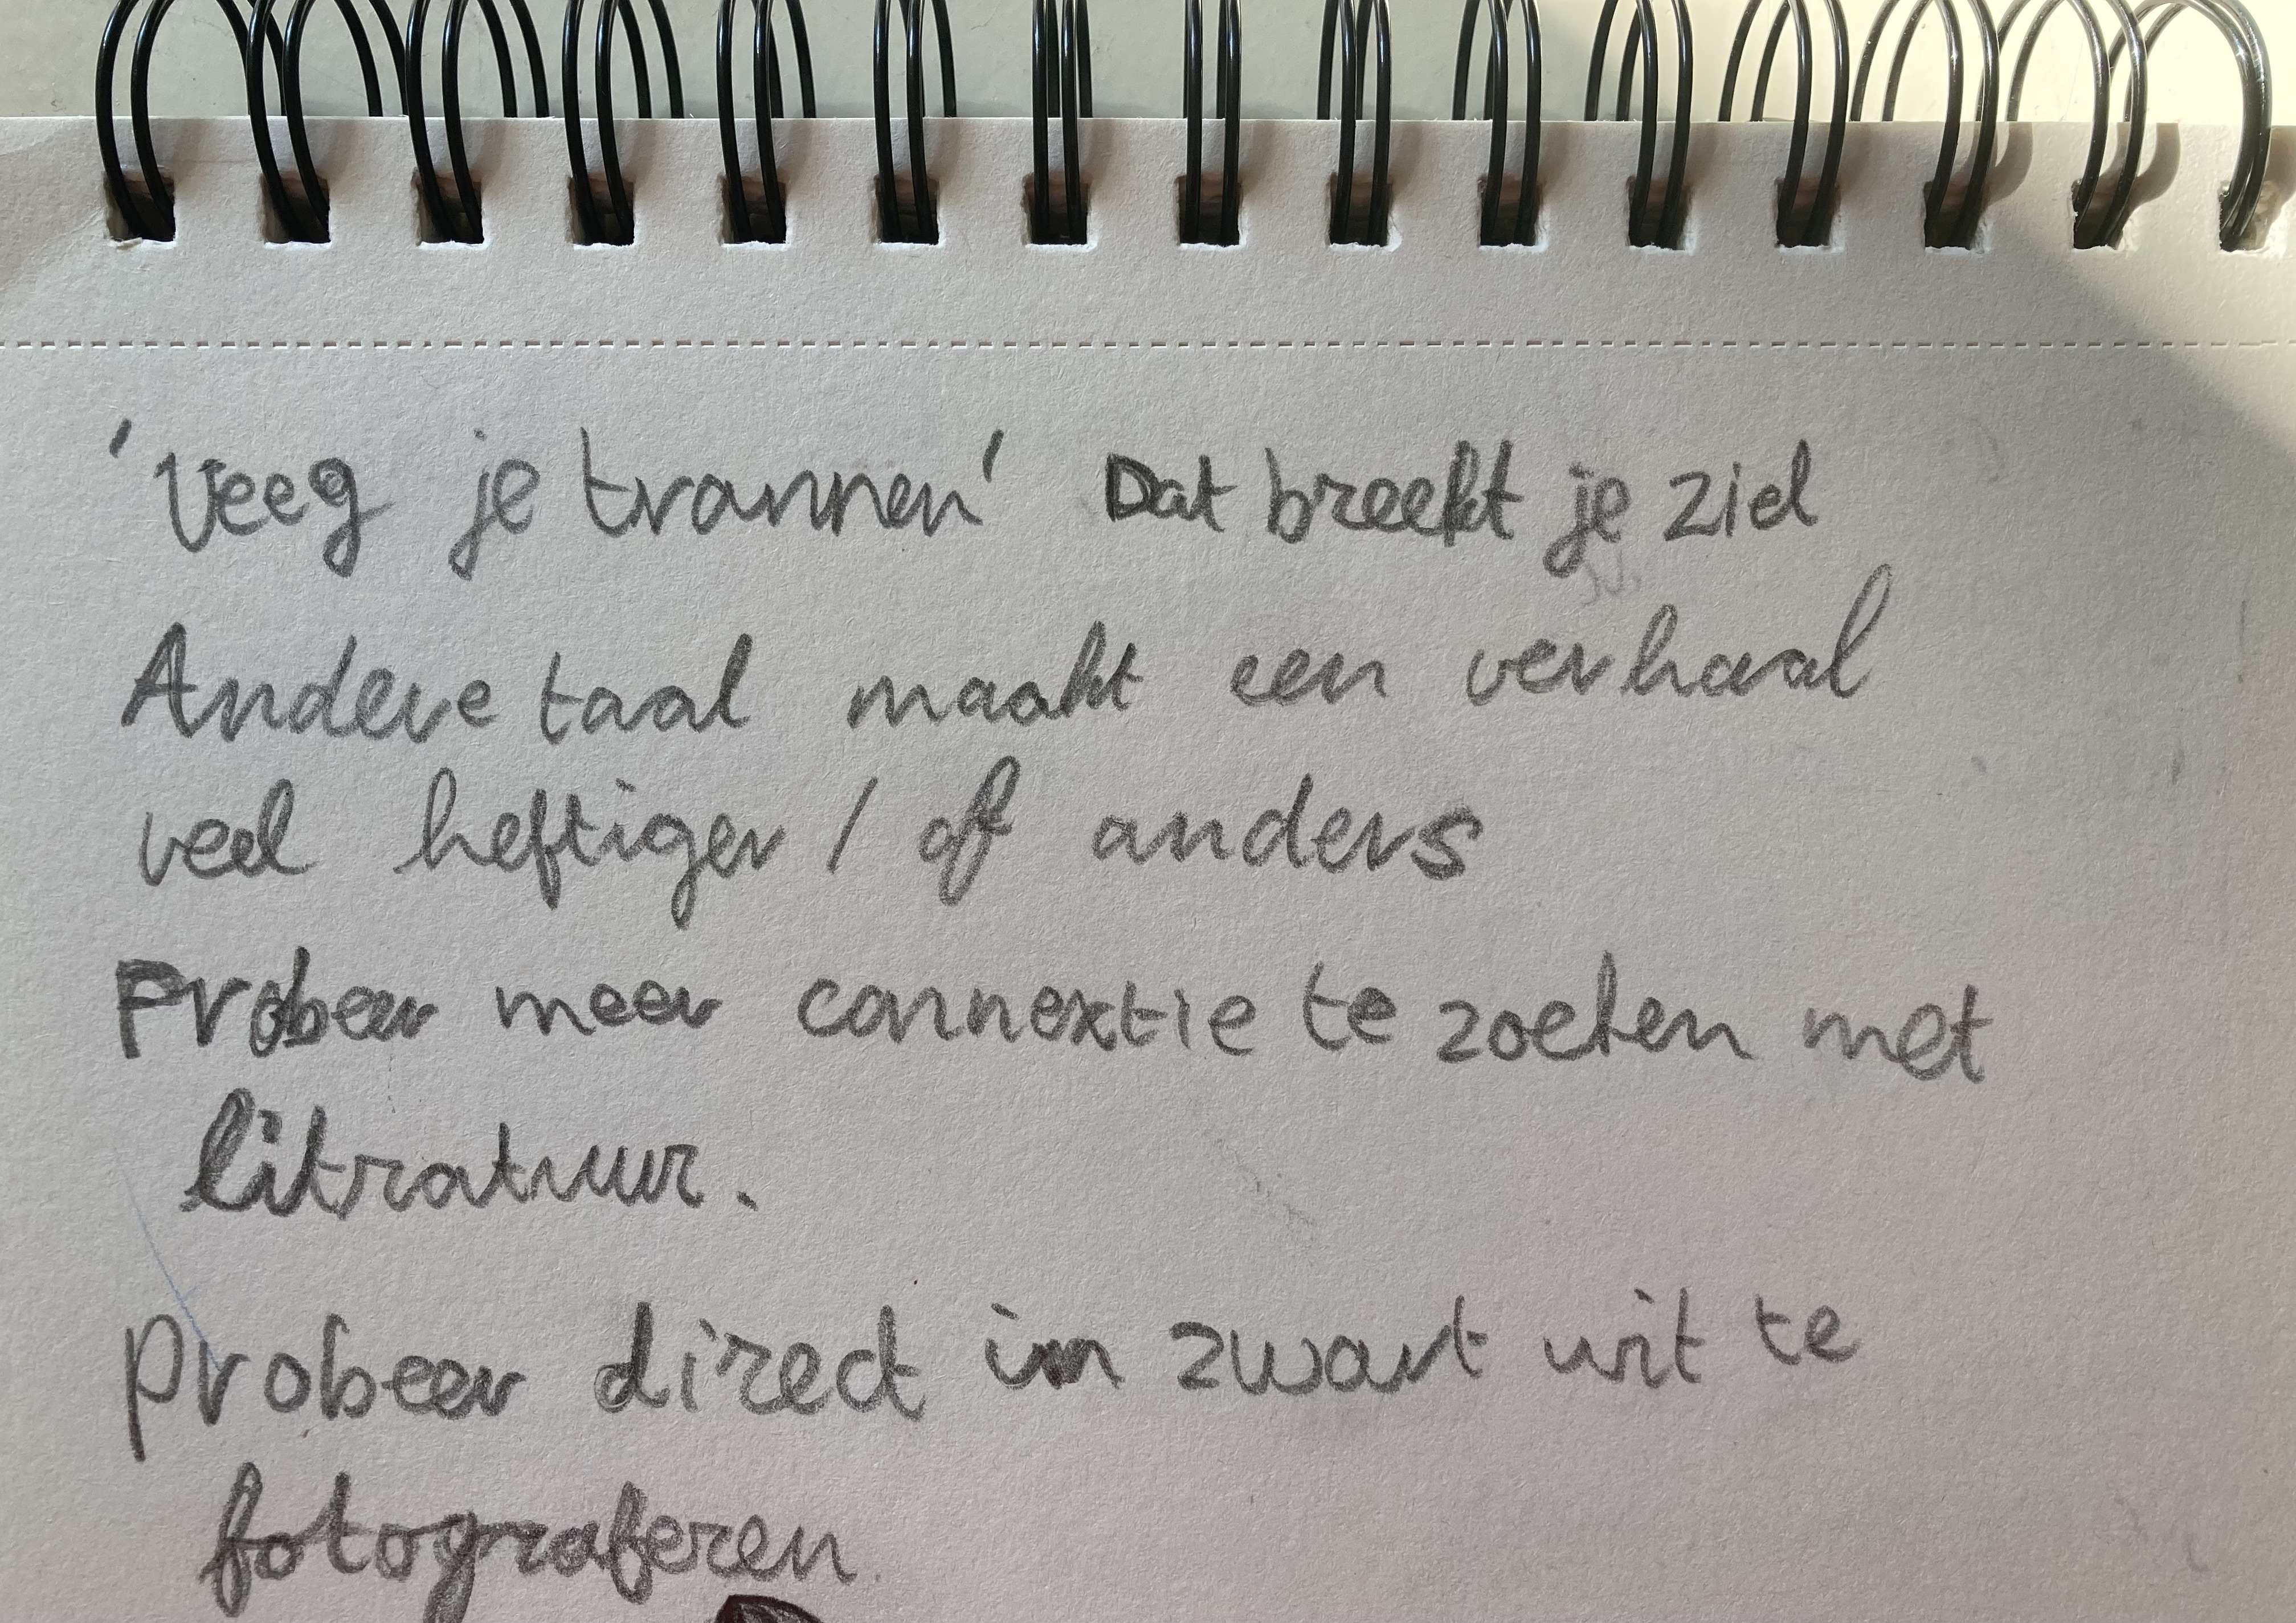 'Veeg je trannen' Dat breekt je ziel
Andere taal maakt een verhaal
veel heftiger / of anders
Probeer meer connextie te zoeken met
litratuur.
probeer direct in zwart wit te
fotograferen.